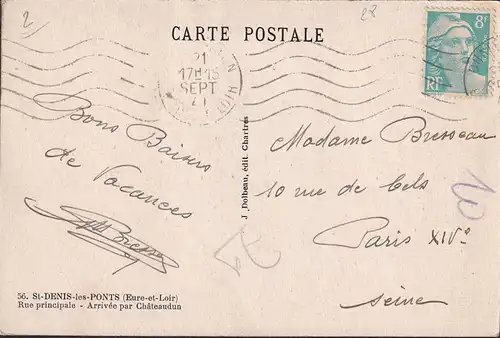 2/
28
CARTE POSTALE
21
17H15
SEPT
8F
RF
Bons Baisers
de Vacances
Madame Bresseau
10 rue de Cels
Paris XIVe
Seine
10
J. Dolbeau, édit. Chartres
56. St-DENIS-les-PONTS (Eure-et-Loir)
Rue principale - Arrivée par Châteaudun